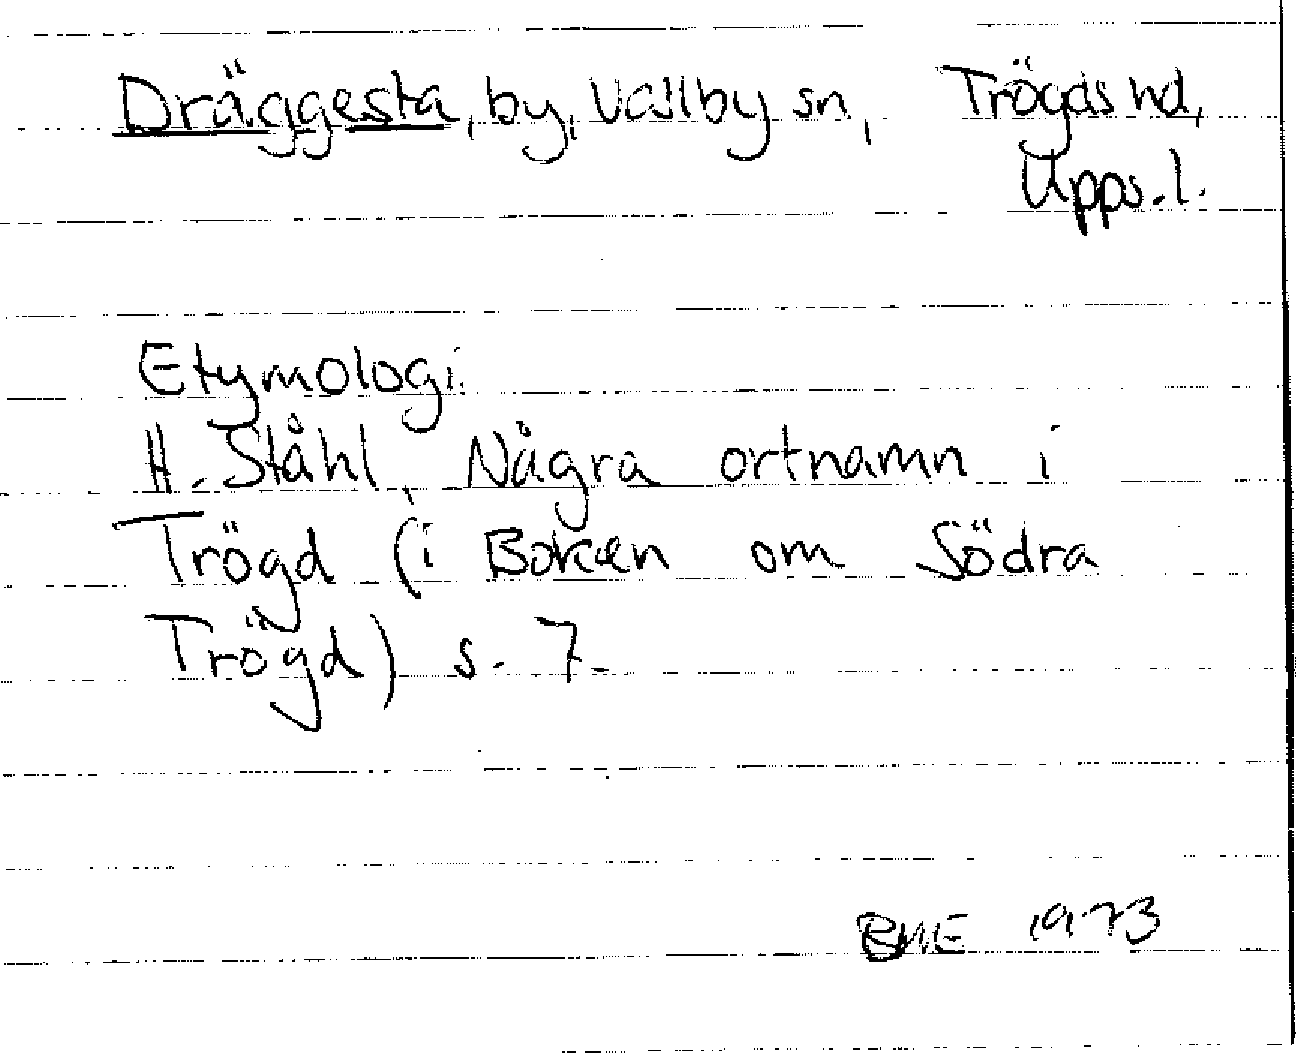 Dräggesta, by, Vallby sn, Trögds hd,
Upps. l.
Etymologi.
H. Ståhl, Några ortnamn i
Trögd (i Boken om Södra
Trögd) s. 7.
1973